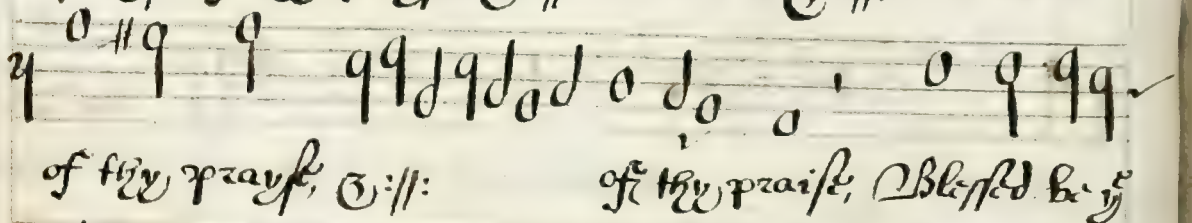 of thy prayse, &c://: of thy praise, Blessed be yͤ